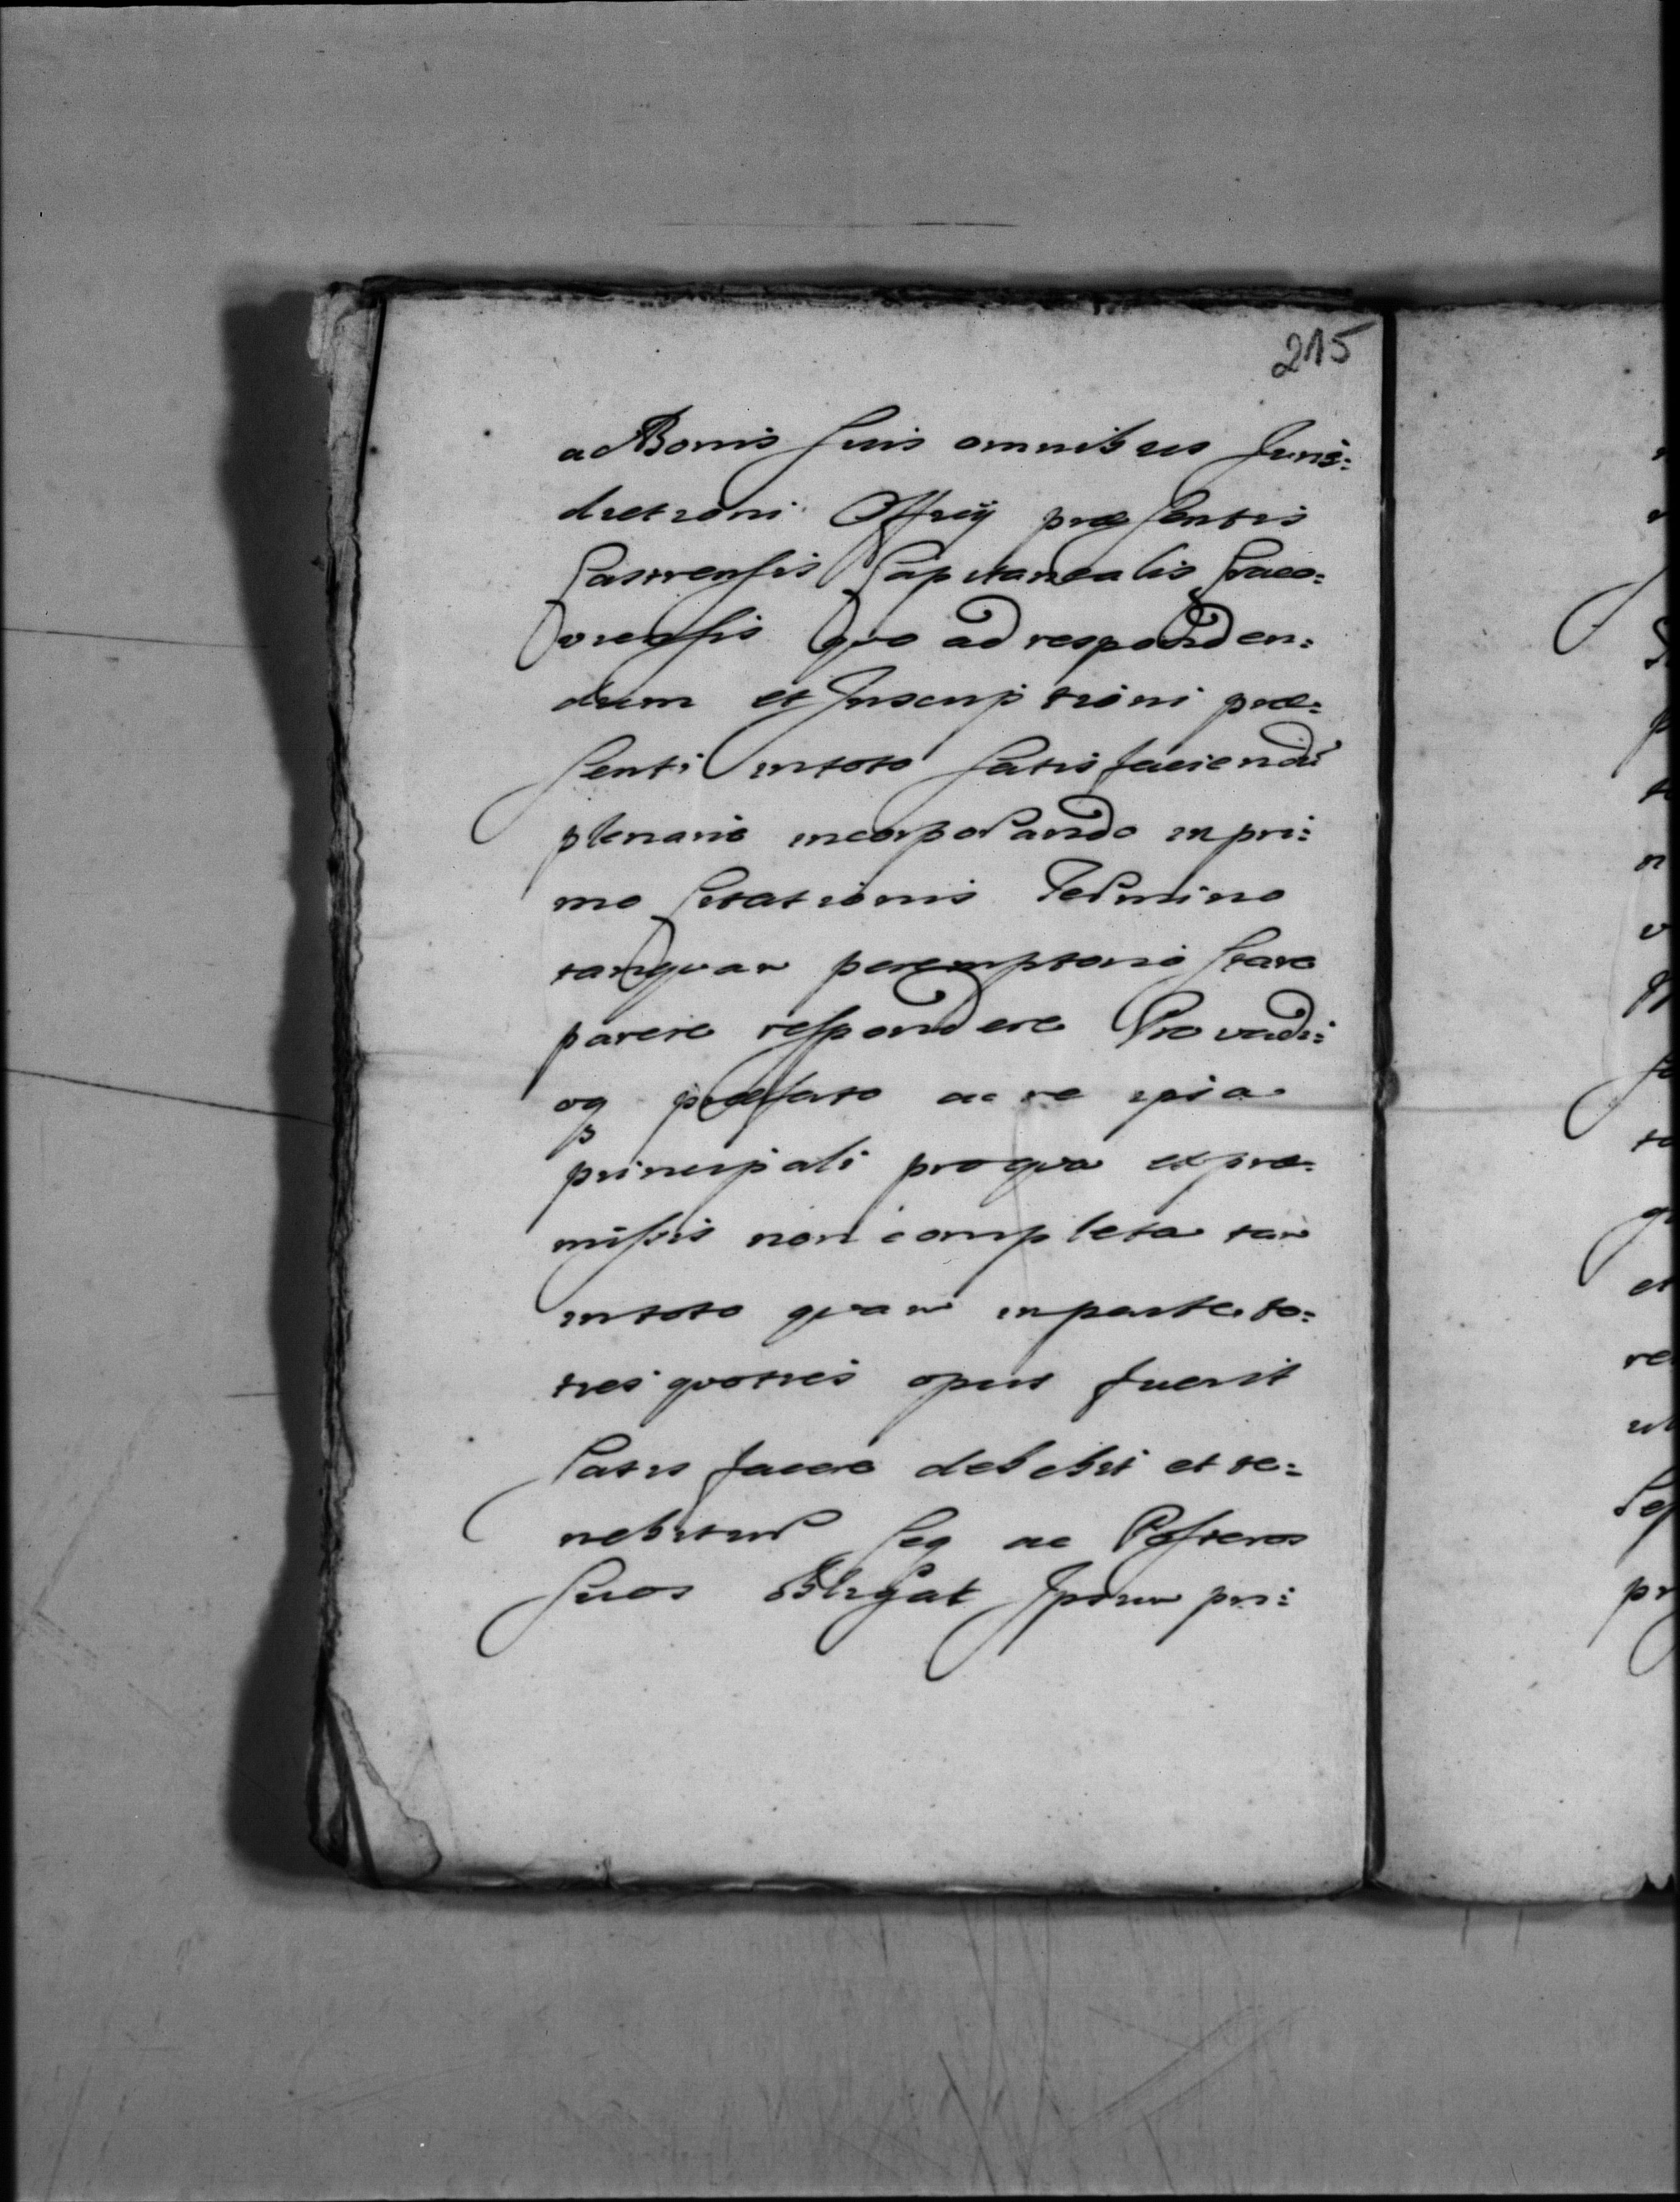 215
ac Bonis suis omnibus Juris:
dictioni Officij præsentis
Castrensis Capitanealis Craco:
viensis quo ad responden:
dum et Inscriptioni præ:
senti in toto satisfaciendũ
plenarie incorporando in pri:
mo Citationis Termino
tanquam peremptorio stare
parere respondere Pro vadi:
oq præfato ac re ipsa
principali pro qua ex præ:
missis non completa tam
in toto quam in parte to:
ties quoties opus fuerit
satis facere debebit et te:
nebitur seq ac Posteros
suos obligat Ipsum pri: